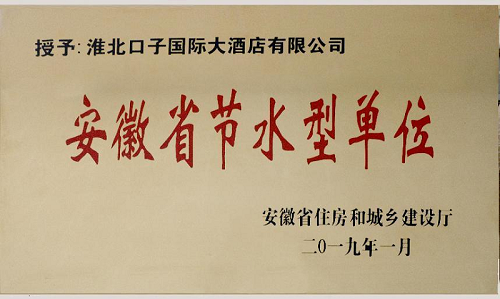 授予:淮北口子国际大酒店有限公司
安徽省节水型单位
安徽省住房和城乡建设厅
二0一九年一月